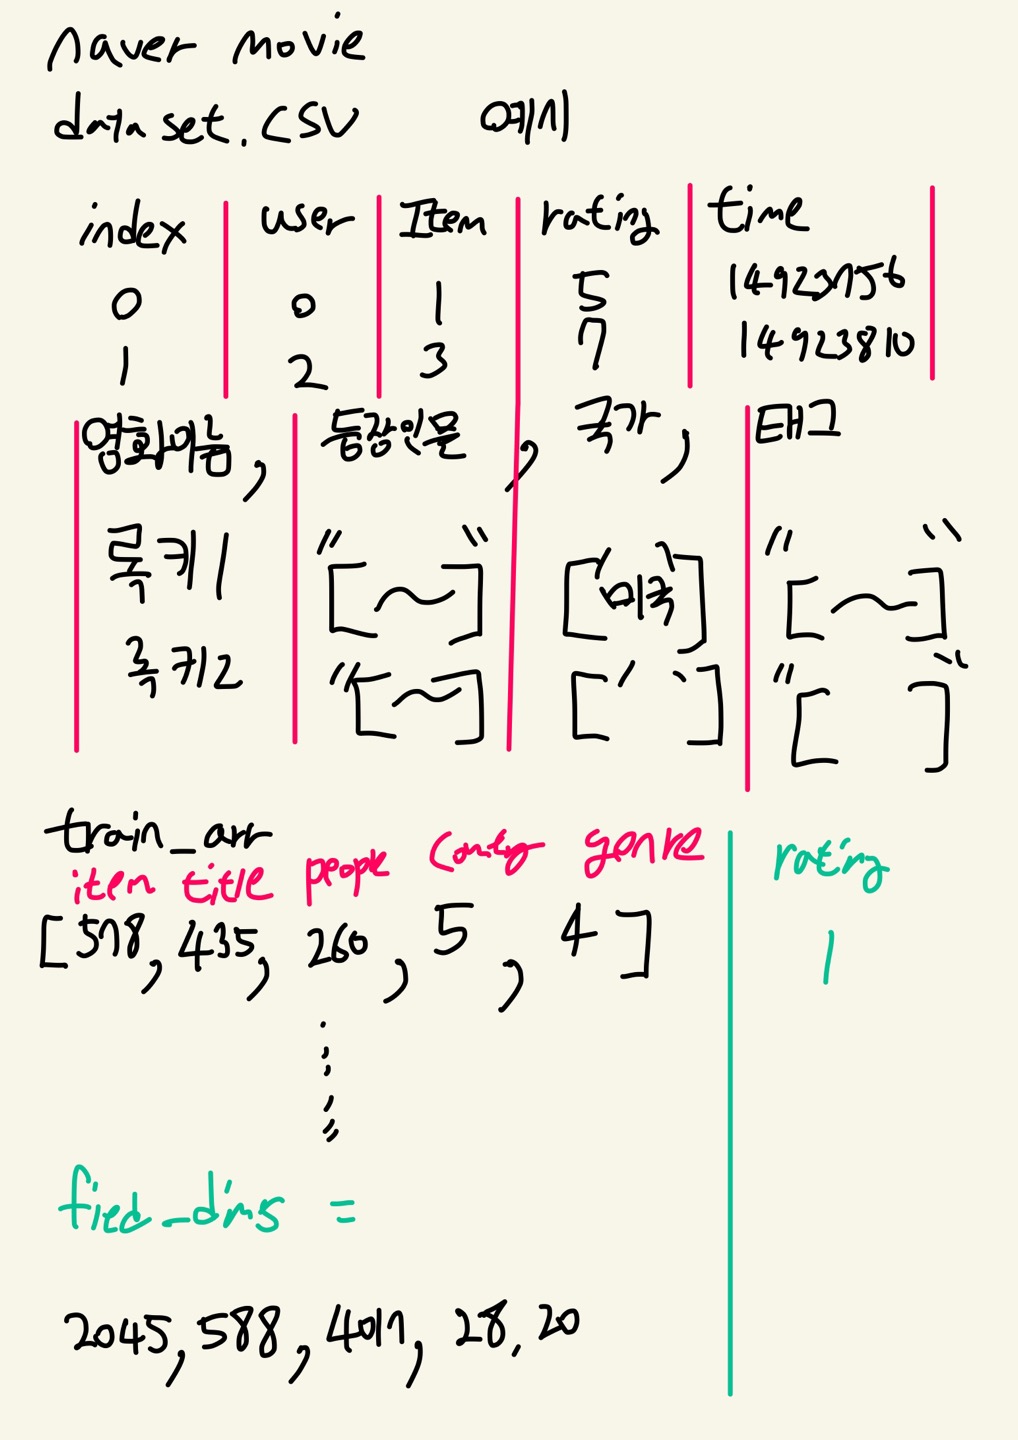 naver movie
dataset.csv 예시
index user Item rating time
0 0 1 5 14923756
1 2 3 7 14923810
영화이름, 등장인물, 국가, 태그
록키1 "[~]" ['미국'] "[~]"
록키2 "[~] [' '] "[ ]"
train_arr
item title people contry genre rating
[578, 435, 260, 5, 4] 1
fied_dims =
2045, 588, 4017, 28, 20